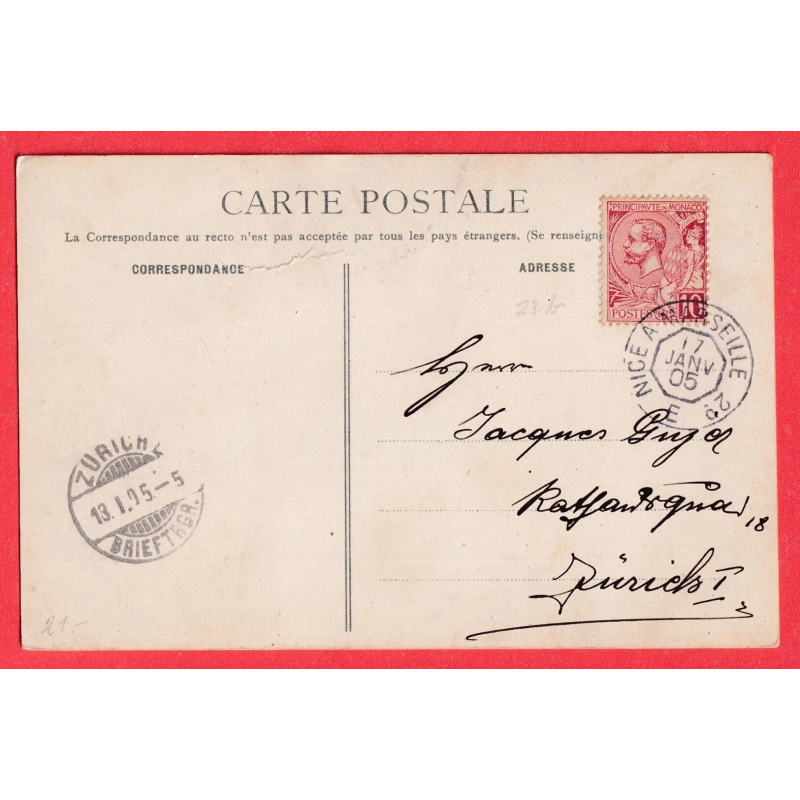 CARTE POSTALE
La Correspondance au recto n'est pas acceptée par tous les pays étrangers. (Se renseign
CORRESPONDANCE
ADRESSE
PRINCIPAVTE DE MONACO
POSTES
10
NICE A MARSEILLE
17
JANV
05
E
23 b
Herr
Jacques
18
Zürich I
ZÜRICH
13.I.05.-5
BRIEFTRGR.
21.-